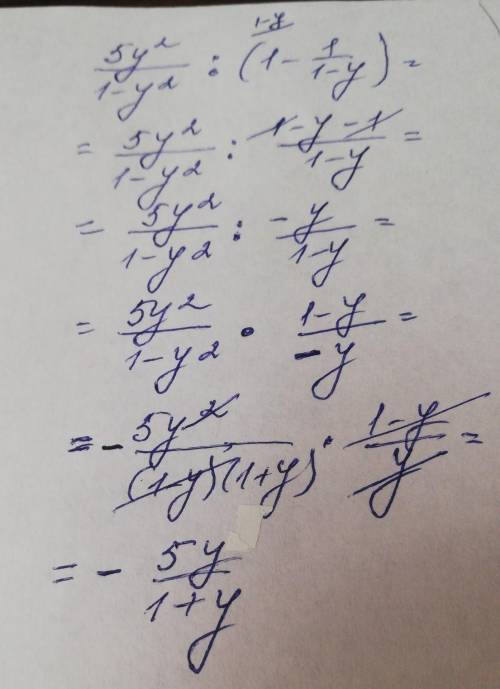 1-y
5y²/(1-y²) : (1 - 1/(1-y)) =
= 5y²/(1-y²) : (1-y-1)/(1-y) =
= 5y²/(1-y²) : (-y)/(1-y) =
= 5y²/(1-y²) · (1-y)/(-y) =
= - 5y²/((1-y)(1+y)) · (1-y)/y =
= - 5y/(1+y)